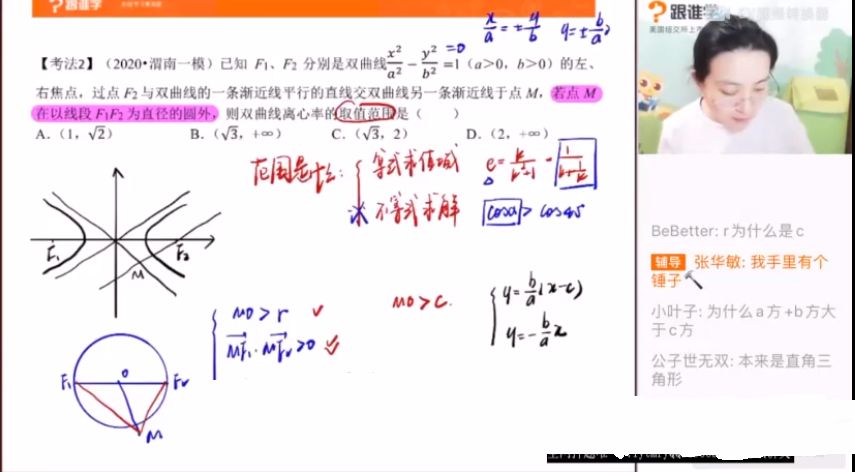 跟谁学
跟谁学
x/a=±y/b y=±b/a x
【考法2】（2020•渭南一模）已知 F₁、F₂ 分别是双曲线x²/a² - y²/b² =1（a>0，b>0）的左、 =0
右焦点，过点 F₂ 与双曲线的一条渐近线平行的直线交双曲线另一条渐近线于点 M，若点 M
在以线段 F₁F₂ 为直径的圆外，则双曲线离心率的取值范围是（ ）
A.（1，√2） B.（√3，+∞） C.（√3，2） D.（2，+∞）
范围是什么： 等式求值域
不等式求解 cosα > cos45
F₁ F₂
M
MO > r
MF₁·MF₂>0
MO > c.
y=b/a(x-c)
y=-b/a x
F₁ O F₂
M
BeBetter: r为什么是c
辅导 张华敏: 我手里有个
锤子🔨
小叶子: 为什么a方+b方大
于c方
公子世无双: 本来是直角三
角形